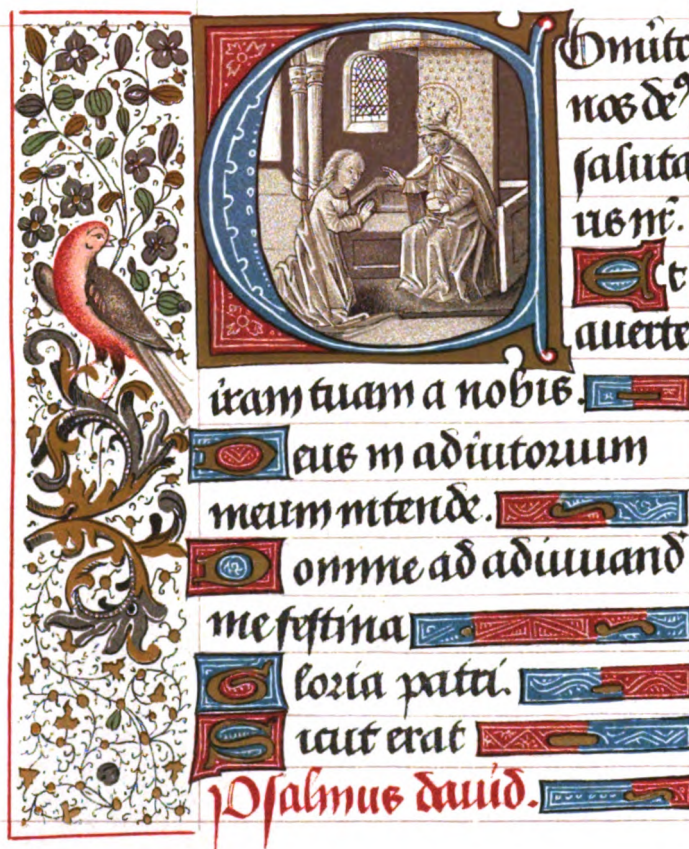 COnūte
nos deꝰ
saluta
ris nr̄.
Et
auerte
iram tuam a nobis.
Deus in adiutorium
meum intende.
Domine ad adiuuand̄
me festina
Gloria patri.
Sicut erat
Psalmus dauid.